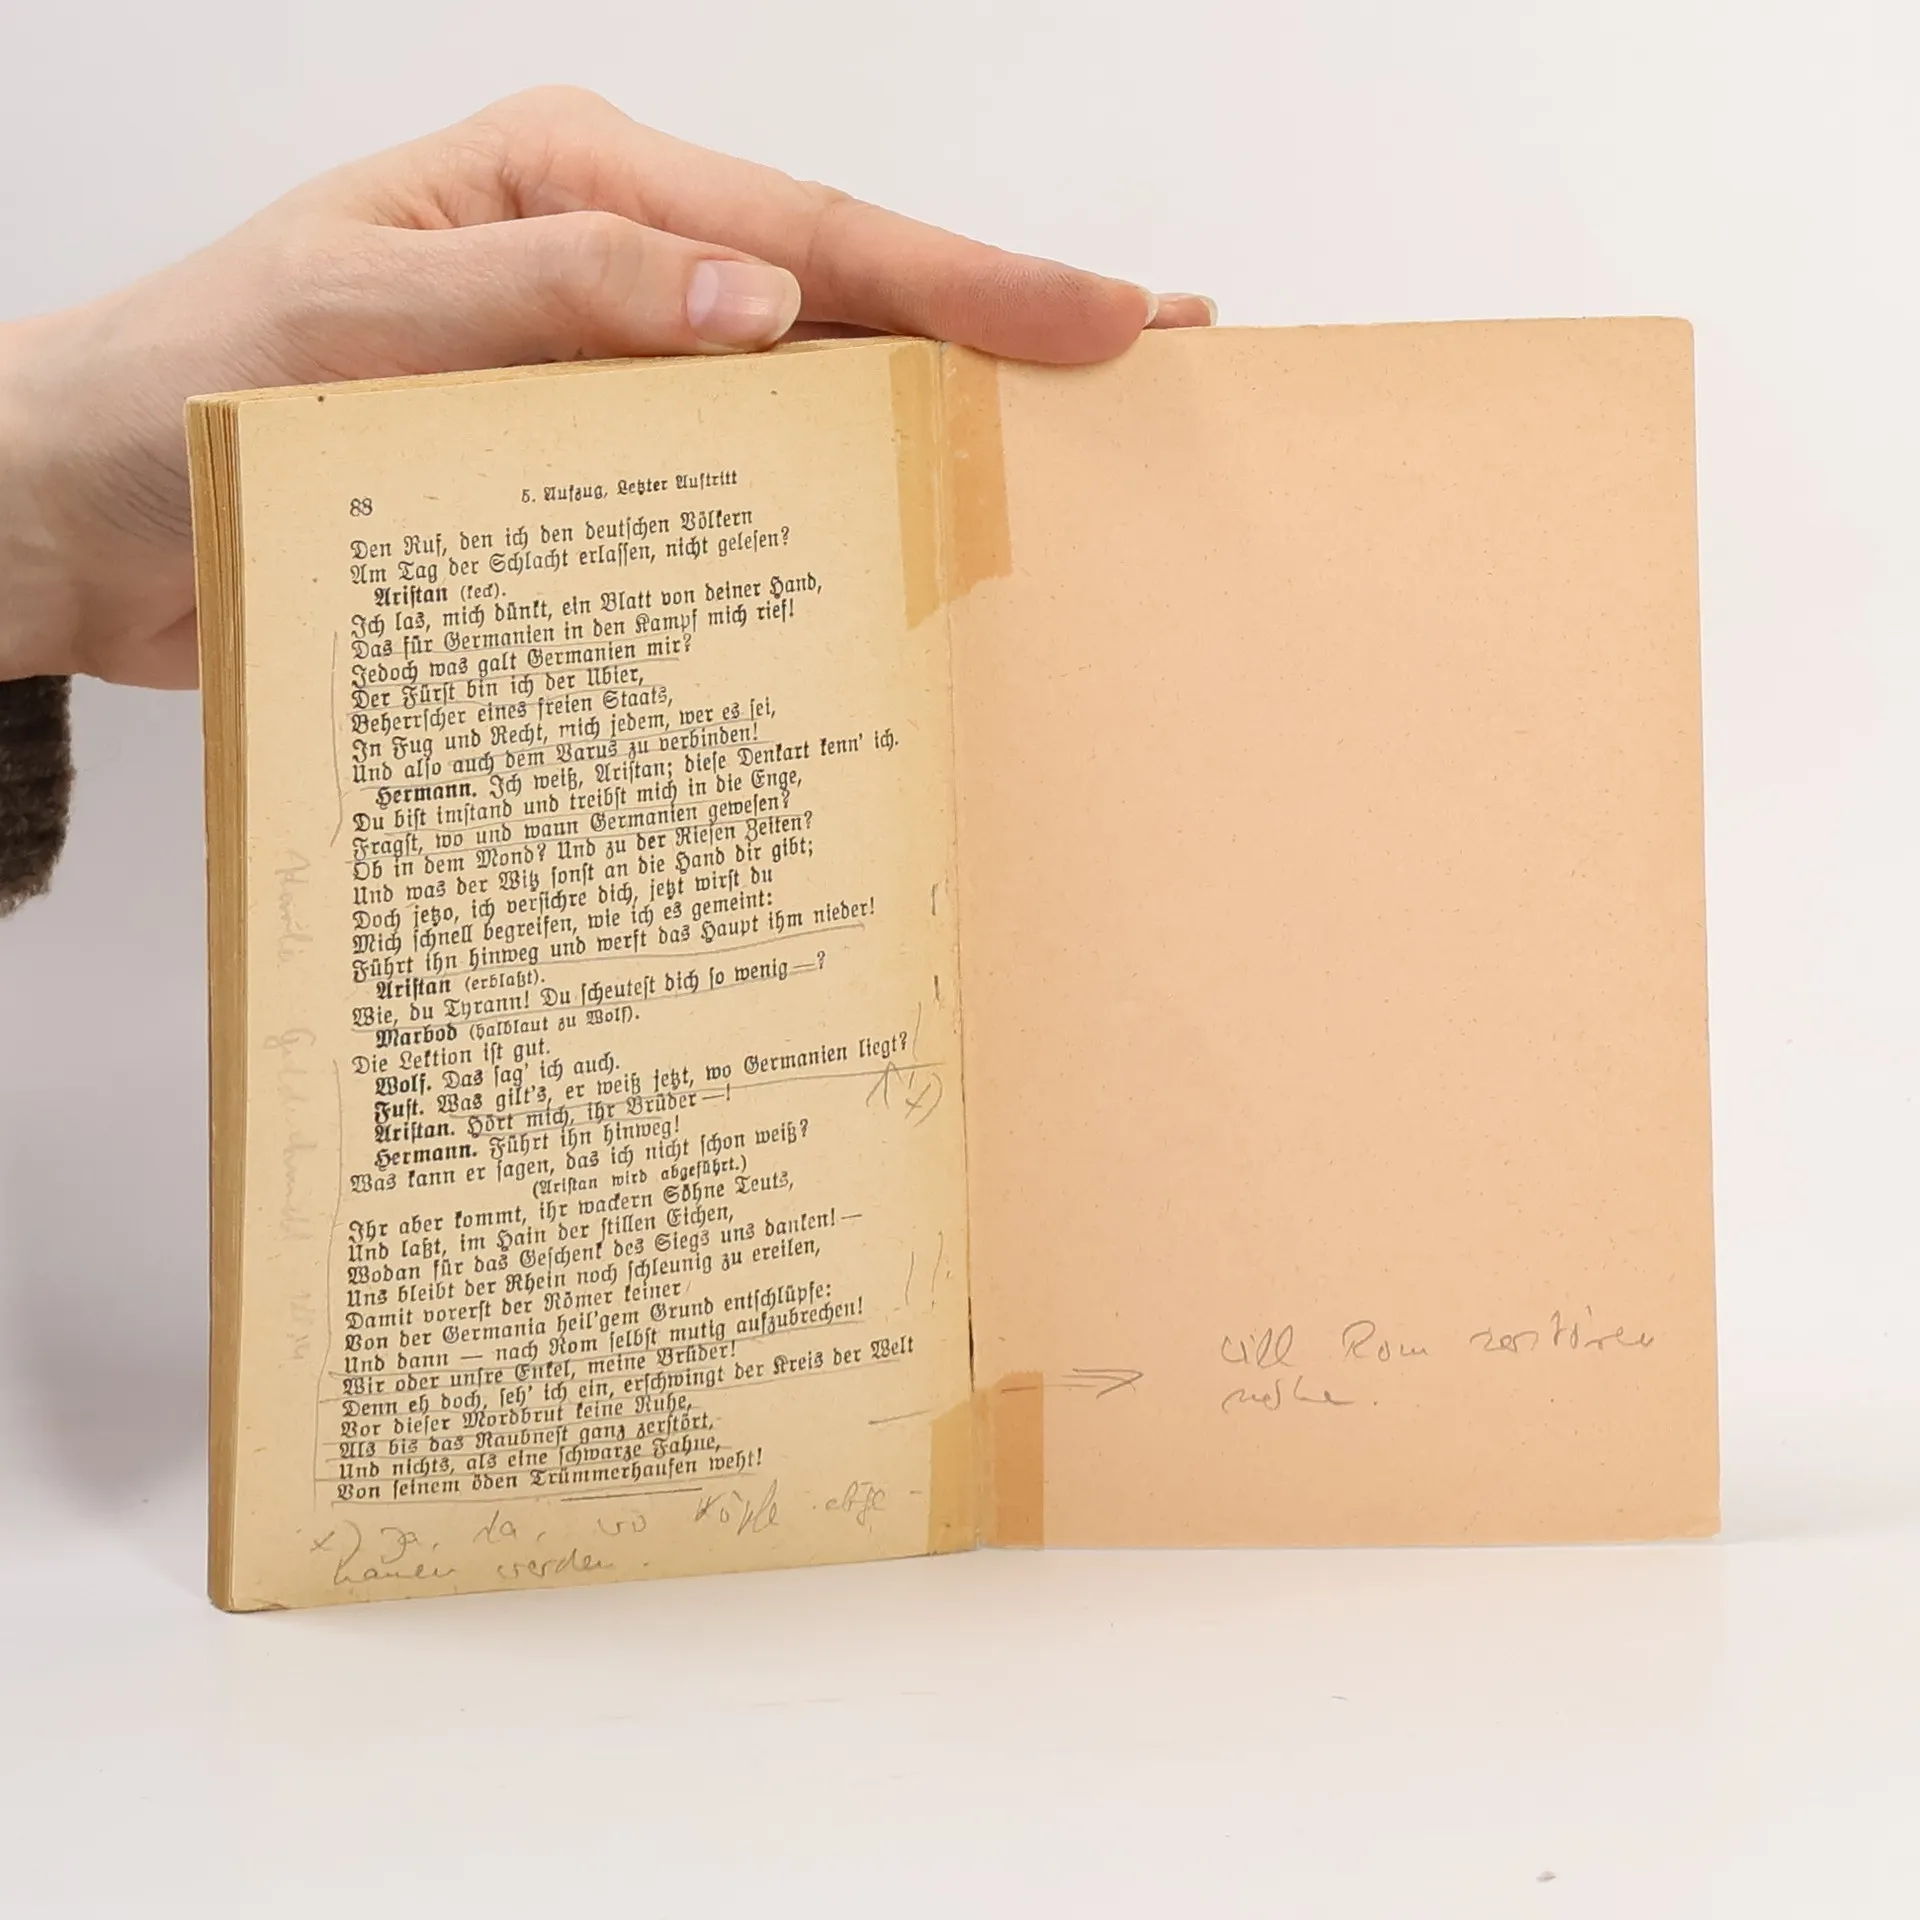 88
5. Aufzug, Letzter Auftritt
Den Ruf, den ich den deutschen Völkern
Am Tag der Schlacht erlassen, nicht gelesen?
Aristan (keck).
Ich las, mich dünkt, ein Blatt von deiner Hand,
Das für Germanien in den Kampf mich rief!
Jedoch was galt Germanien mir?
Der Fürst bin ich der Ubier,
Beherrscher eines freien Staats,
In Fug und Recht, mich jedem, wer es sei,
Und also auch dem Varus zu verbinden!
Hermann. Ich weiß, Aristan; diese Denkart kenn' ich.
Du bist imstand und treibst mich in die Enge,
Fragst, wo und wann Germanien gewesen?
Ob in dem Mond? Und zu der Riesen Zeiten?
Und was der Witz sonst an die Hand dir gibt;
Doch jetzo, ich versichre dich, jetzt wirst du
Mich schnell begreifen, wie ich es gemeint:
Führt ihn hinweg und werft das Haupt ihm nieder!
Aristan (erblaßt).
Wie, du Tyrann! Du scheutest dich so wenig—?
Marbod (halblaut zu Wolf).
Die Lektion ist gut.
Wolf. Das sag' ich auch.
Fust. Was gilt's, er weiß jetzt, wo Germanien liegt?
Aristan. Hört mich, ihr Brüder—!
Hermann. Führt ihn hinweg!
Was kann er sagen, das ich nicht schon weiß?
(Aristan wird abgeführt.)
Ihr aber kommt, ihr wackern Söhne Teuts,
Und laßt, im Hain der stillen Eichen,
Wodan für das Geschenk des Siegs uns danken!—
Uns bleibt der Rhein noch schleunig zu ereilen,
Damit vorerst der Römer keiner
Von der Germania heil'gem Grund entschlüpfe:
Und dann — nach Rom selbst mutig aufzubrechen!
Wir oder unsre Enkel, meine Brüder!
Denn eh doch, seh' ich ein, erschwingt der Kreis der Welt
Vor dieser Mordbrut keine Ruhe,
Als bis das Raubnest ganz zerstört,
Und nichts, als eine schwarze Fahne,
Von seinem öden Trümmerhaufen weht!
x) Ja, da, wo Köpfe abge-
hauen werden.
will Rom zerstören